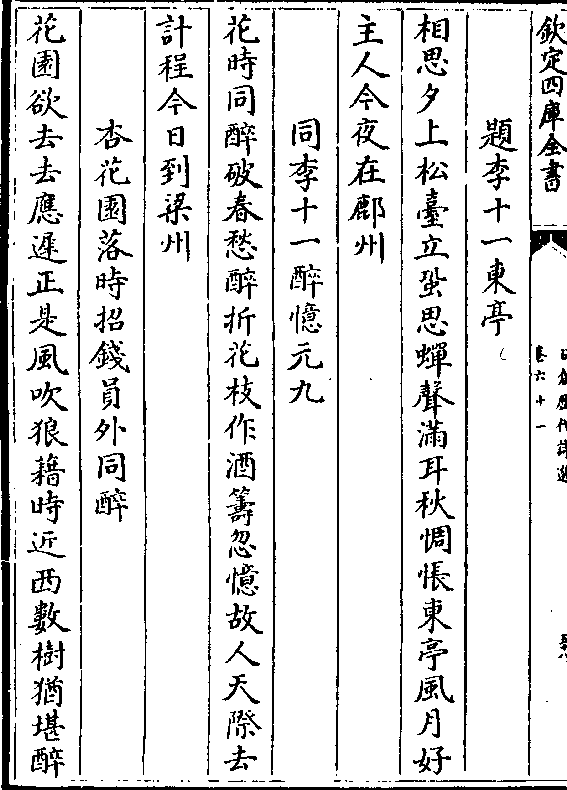 欽定四庫全書
卷六十一
題李十一東亭
相思夕上松臺立蛩思蟬聲滿耳秋惆悵東亭風月好
主人今夜在鄜州
同李十一醉憶元九
花時同醉破春愁醉折花枝作酒籌忽憶故人天際去
計程今日到梁州
杏花園落時招錢員外同醉
花園欲去去應遲正是風吹狼藉時近西數樹猶堪醉